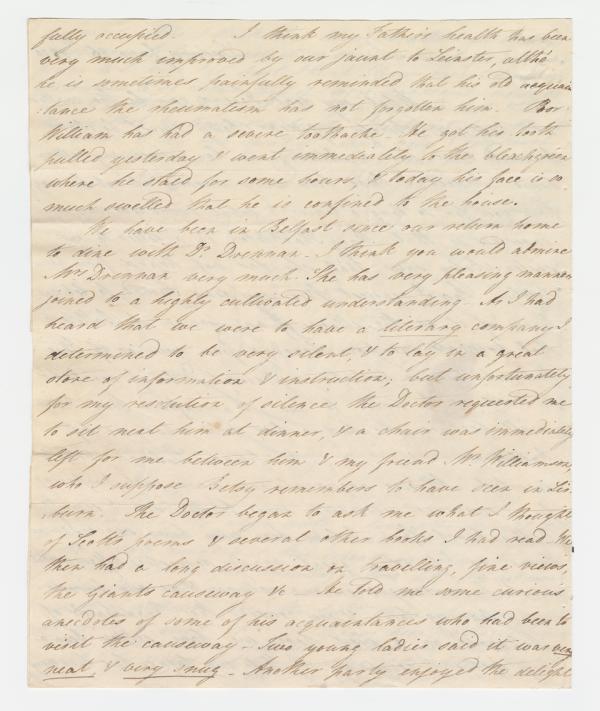 fully occupied. I think my Father's health has been
very much improved by our jaunt to Leinster, altho'
he is sometimes painfully reminded that his old acquain
:tance the rheumatism has not forgotten him. Poor
William has had a severe toothache. He got his tooth
pulled yesterday & went immediately to the bleachgreen
where he staid for some hours, & today his face is so
much swelled that he is confined to the house.
We have been in Belfast since our return home
to dine with Dr. Drennan. I think you would admire
Mrs Drennan very much. She has very pleasing manners
joined to a highly cultivated understanding. As I had
heard that we were to have a literary company I
determined to be very silent, & to lay in a great
store of information & instruction; but unfortunately
for my resolution of silence the Doctor requested me
to sit next him at dinner, & a chair was immediately
left for me between him & my friend Mr. Williamson,
who I suppose Betsy remembers to have seen in Lis:
burn. The Doctor began to ask me what I thought
of Scott's poems & several other books I had read. We
then had a long discussion on travelling, fine views,
the Giants causeway &c. He told me some curious
anecdotes of some of his acquaintances who had been to
visit the causeway - Two young ladies said it was very
neat & very snug - Another party enjoyed the delight